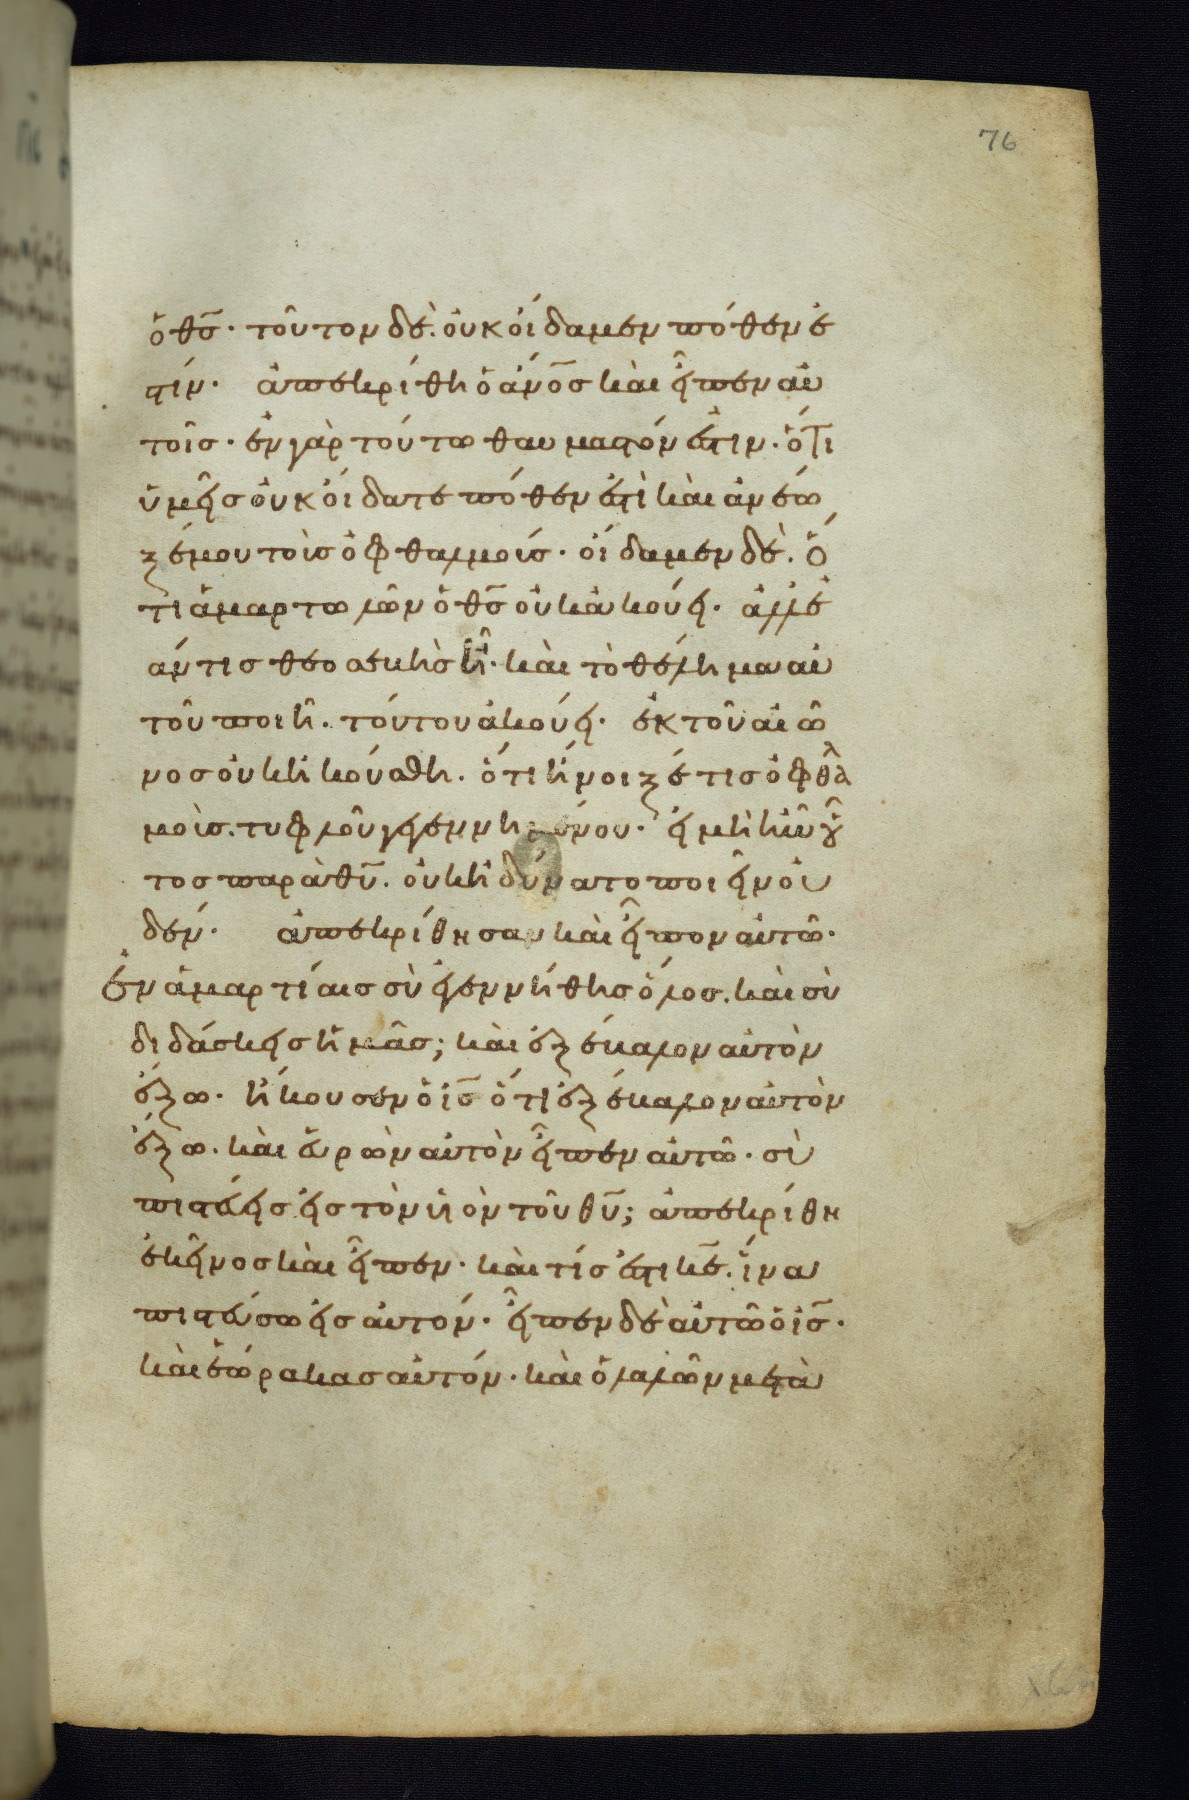 76
ὁ θς̄· τοῦτον δὲ. οὐκ οἴδαμεν πόθεν ἐ
στίν· ἀπεκρίθη ὁ ἄνο̄σ καὶ εἶπεν αὐ
τοῖσ· ἐν γὰρ τούτω θαυμαστόν ἐστιν. ὅτι
ὑμεῖσ οὐκ οἴδατε πόθεν ἐστὶ καὶ ἀνέω
ξέ μου τοὺσ ὀφθαλμούσ· οἴδαμεν δὲ. ὅ
τι ἁμαρτωλῶν ὁ θς̄ οὐκ ἀκούει· ἀλλ' ἐ
άν τισ θεοσεβὴσ ἦ· καὶ τὸ θέλημα αὐ
τοῦ ποιῆ. τούτου ἀκούει· ἐκ τοῦ αἰῶ
νοσ οὐκ ἠκούσθη. ὅτι ἤνοιξέ τισ ὀφθαλ
μοὺσ. τυφλοῦ γεγεννημένου· εἰ μὴ ἦν οὗ
τοσ παρὰ θῡ. οὐκ ἠδύνατο ποιεῖν οὐ
δέν· ἀπεκρίθησαν καὶ εἶπον αὐτῶ·
ἐν ἁμαρτίαισ σὺ ἐγεννήθησ ὅλοσ. καὶ σὺ
διδάσκεισ ἡμᾶσ; καὶ ἐξέβαλον αὐτὸν
ἔξω. ἤκουσεν ὁ ις̄ ὅτι ἐξέβαλον αὐτὸν
ἔξω. καὶ εὑρὼν αὐτὸν εἶπεν αὐτῶ· σὺ
πιστεύεισ εἰσ τὸν υἱὸν τοῦ θῡ; ἀπεκρίθη
ἐκεῖνοσ καὶ εἶπεν· καὶ τίσ ἐστι κε̄. ἵνα
πιστεύσω εἰσ αὐτόν· εἶπεν δὲ αὐτῶ ὁ ις̄·
καὶ ἑώρακασ αὐτόν· καὶ ὁ λαλῶν μετὰ